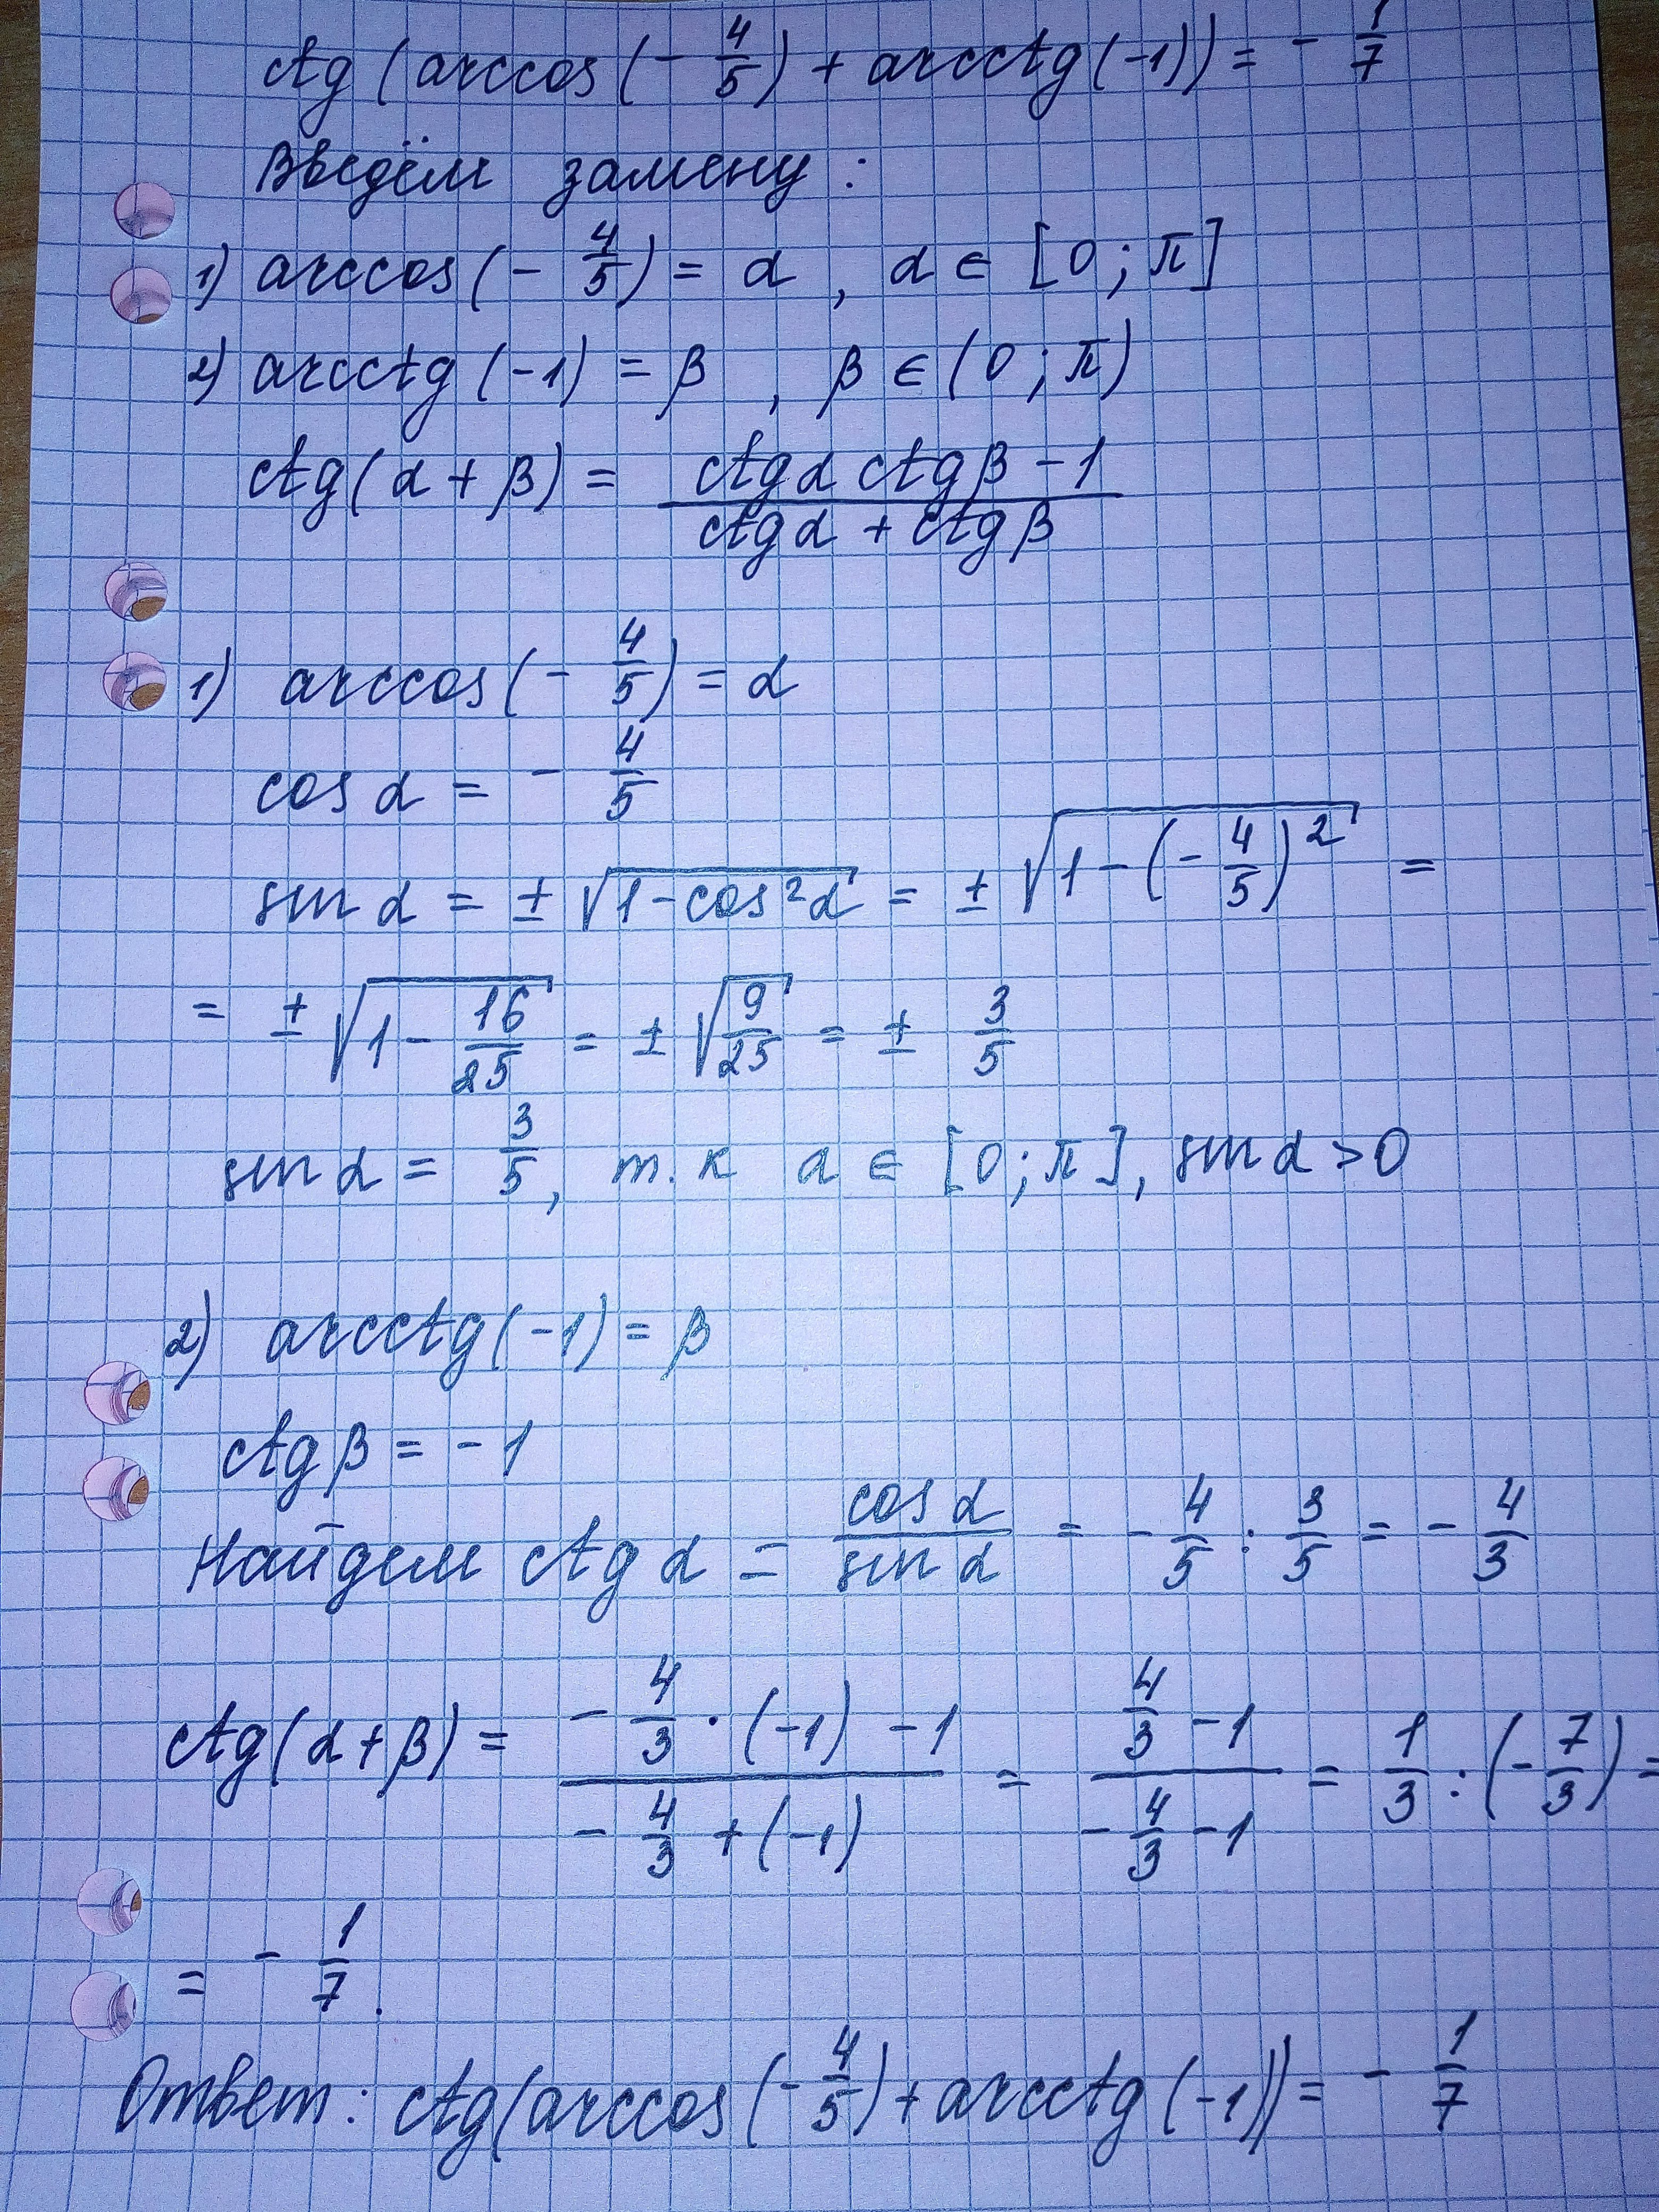 ctg (arccos(- 4/5) + arcctg(-1)) = - 1/7
Введём замену :
1) arccos(- 4/5) = α , α ∈ [0 ; π]
2) arcctg(-1) = β , β ∈ (0 ; π)
ctg(α + β) = (ctgα ctgβ - 1)/(ctgα + ctgβ)
1) arccos(- 4/5) = α
cos α = - 4/5
sin α = ± √(1-cos²α) = ± √(1-(- 4/5)²) =
= ± √(1 - 16/25) = ± √(9/25) = ± 3/5
sin α = 3/5, т.к α ∈ [0 ; π], sin α > 0
2) arcctg(-1) = β
ctg β = -1
Найдем ctg α = cos α/sin α = - 4/5 : 3/5 = - 4/3
ctg(α + β) = (- 4/3 · (-1) - 1)/(- 4/3 + (-1)) = (4/3 - 1)/(- 4/3 - 1) = 1/3 : (- 7/3) =
= - 1/7.
Ответ: ctg(arccos(- 4/5) + arcctg(-1)) = - 1/7